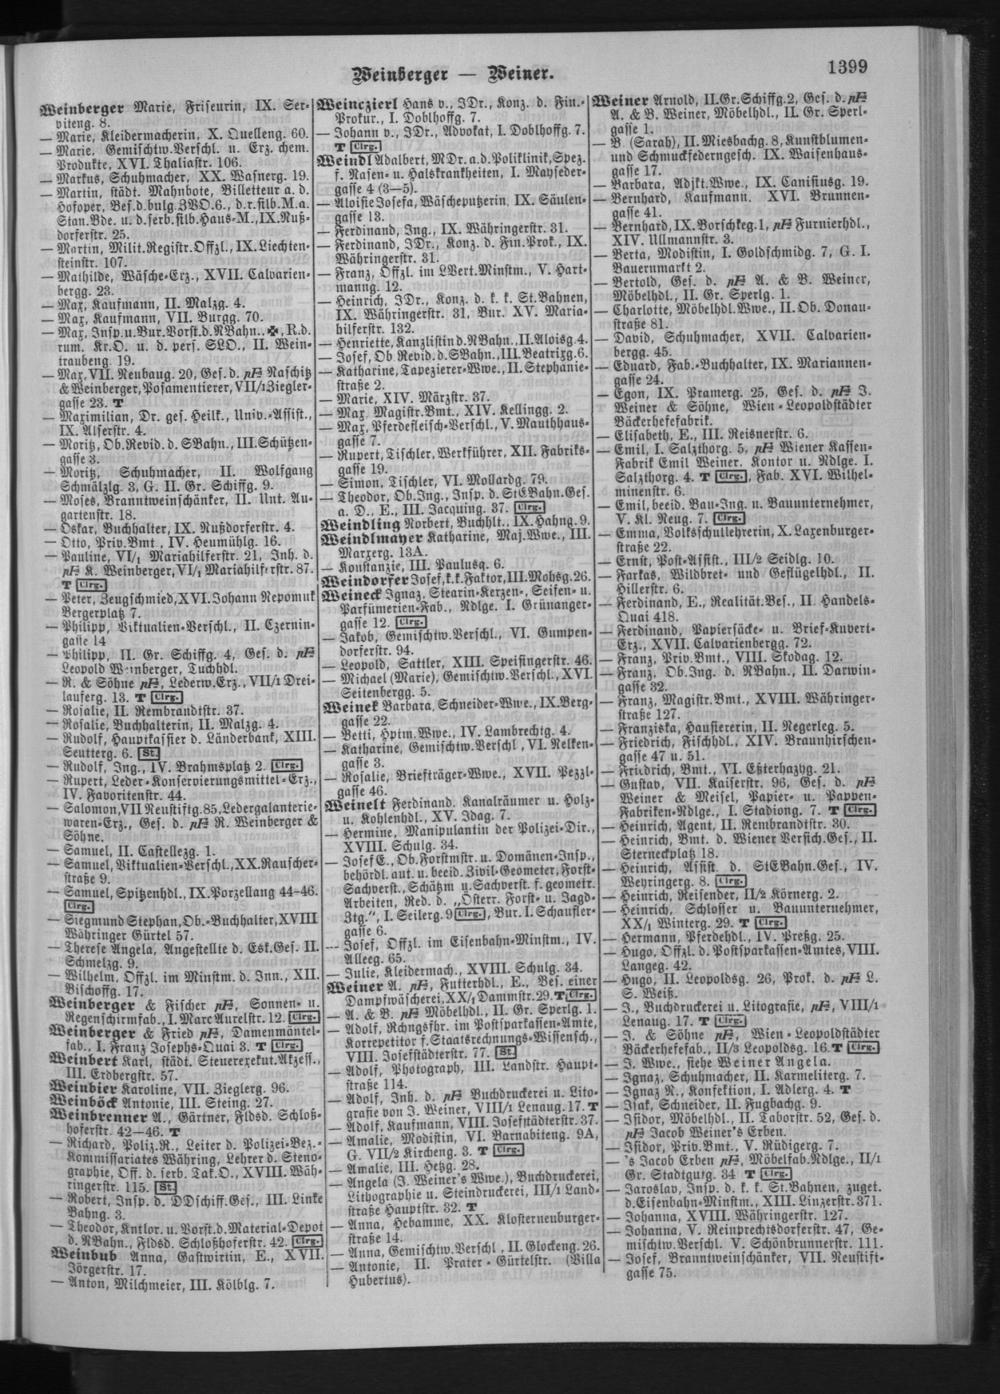 Weinberger — Weiner.
1399
Weinberger Marie, Friseurin, IX. Ser-
viteng. 8.
— Marie, Kleidermacherin, X. Quelleng. 60.
— Marie, Gemischtw.Verschl. u. Erz. chem.
Produkte, XVI. Thaliastr. 106.
— Markus, Schuhmacher, XX. Wasnerg. 19.
— Martin, städt. Mahnbote, Billetteur a. d.
Hofoper, Bes.d.bulg.ZVO.6., d.r.silb.M.a.
Stan.Bde. u. d.serb.silb.Haus-M., IX.Nuß-
dorferstr. 25.
— Martin, Milit.Registr.Offzl., IX.Liechten-
steinstr. 107.
— Mathilde, Wäsche-Erz., XVII. Calvarien-
bergg. 23.
— Max, Kaufmann, II. Malzg. 4.
— Max, Kaufmann, VII. Burgg. 70.
— Max, Insp.u.Bur.Vorst.d.NBahn., ✠, R.d.
rum. Kr.O. u. d. pers. SLO., II. Wein-
traubeng. 19.
— Max, VII. Neubaug. 20, Ges.d. Naschitz
& Weinberger, Posamentierer, VII/1 Ziegler-
gasse 23. T
— Maximilian, Dr. ges. Heilk., Univ.-Assist.,
IX. Alserstr. 4.
— Moritz, Ob.Revid. d. SBahn., III.Schützen-
gasse 3.
— Moritz, Schuhmacher, II. Wolfgang
Schmälzlg. 3, G. II. Gr. Schiffg. 9.
— Moses, Branntweinschänker, II. Unt. Au-
gartenstr. 18.
— Oskar, Buchhalter, IX. Nußdorferstr. 4.
— Otto, Priv.Bmt., IV. Heumühlg. 16.
— Pauline, VI/1 Mariahilferstr. 21, Inh. d.
K. Weinberger, VI/1 Mariahilferstr. 87.
T Clrg.
— Peter, Zeugschmied, XVI.Johann Nepomuk
Bergerplatz 7.
— Philipp, Viktualien-Verschl., II. Czernin-
gasse 14
— Philipp, II. Gr. Schiffg. 4, Ges. d.
Leopold Weinberger, Tuchhdl.
— R. & Söhne, Lederw.Erz., VII/1 Drei-
lauferg. 13. T Clrg.
— Rosalie, II. Rembrandtstr. 37.
— Rosalie, Buchhalterin, II. Malzg. 4.
— Rudolf, Hauptkassier d. Länderbank, XIII.
Seutterg. 6. St.
— Rudolf, Ing., IV. Brahmsplatz 2. Clrg.
— Rupert, Leder-Konservierungsmittel-Erz.,
IV. Favoritenstr. 44.
— Salomon, VII Neustiftg.85, Ledergalanterie-
waren-Erz., Ges. d. R. Weinberger &
Söhne.
— Samuel, II. Castellezg. 1.
— Samuel, Viktualien-Verschl., XX.Rauscher-
straße 9.
— Samuel, Spitzenhdl., IX.Porzellang 44-46.
Clrg.
— Siegmund Stephan, Ob.-Buchhalter, XVIII
Währinger Gürtel 57.
— Therese Angela, Angestellte d. Esk.Ges. II.
Schmelzg. 9.
— Wilhelm, Offzl. im Minstm. d. Inn., XII.
Bischoffg. 17.
Weinberger & Fischer, Sonnen- u.
Regenschirmfab., I.Marc Aurelstr. 12. Clrg.
Weinberger & Fried, Damenmäntel-
fab., I. Franz Josephs-Quai 3. T Clrg.
Weinbert Karl, städt. Steuerexekut.Akzess.,
III. Erdbergstr. 57.
Weinbier Karoline, VII. Zieglerg. 96.
Weinböck Antonie, III. Steing. 27.
Weinbrenner A., Gärtner, Fldsd. Schloß-
hoferstr. 42—46. T
— Richard, Poliz.R., Leiter d. Polizei-Bez.-
Kommissariates Währing, Lehrer d. Steno-
graphie, Off. d. serb. Tak.O., XVIII. Wäh-
ringerstr. 115. St.
— Robert, Insp. d. DDschiff.Ges., III. Linke
Bahng. 3.
— Theodor, Kntlor. u. Vorst.d.Material-Depot
d. NBahn., Fldsd. Schloßhoferstr. 42. Clrg.
Weinbub Anna, Gastwirtin, E., XVII.
Jörgerstr. 17.
— Anton, Milchmeier, III. Kölblg. 7.
Weinczierl Hans v., JDr., Konz. d. Fin.-
Prokur., I. Doblhoffg. 7.
— Johann v., JDr., Advokat, I. Doblhoffg. 7.
T Clrg.
Weindl Adalbert, MDr. a.d.Poliklinik, Spez.
f. Nasen- u. Halskrankheiten, I. Mayseder-
gasse 4 (3—5).
— Aloisie Josefa, Wäscheputzerin, IX. Säulen-
gasse 13.
— Ferdinand, Ing., IX. Währingerstr. 31.
— Ferdinand, JDr., Konz. d. Fin.Prok., IX.
Währingerstr. 31.
— Franz, Offzl. im LVert.Minstm., V. Hart-
manng. 12.
— Heinrich, JDr., Konz. d. k. k. St.Bahnen,
IX. Währingerstr. 31, Bur. XV. Maria-
hilferstr. 132.
— Henriette, Kanzlistin d.NBahn., II.Aloisg.4.
— Josef, Ob Revid. d.SBahn., III.Beatrixg.6.
— Katharine, Tapezierer-Wwe., II. Stephanie-
straße 2.
— Marie, XIV. Märzstr. 37.
— Max, Magistr.Bmt., XIV. Kellingg. 2.
— Max, Pferdefleisch-Verschl., V. Mauthhaus-
gasse 7.
— Rupert, Tischler, Werkführer, XII. Fabriks-
gasse 19.
— Simon, Tischler, VI. Mollardg. 79.
— Theodor, Ob.Ing., Insp. d. StEBahn.Ges.
a. D., E., III. Jacquing. 37. Clrg.
Weindling Norbert, Buchhlt., IX.Hahng. 9.
Weindlmayer Katharine, Maj.Wwe., III.
Marxerg. 13A.
— Konstanzie, III. Paulusg. 6.
Weindorfer Josef, k.k.Faktor, III.Mohsg.26.
Weineck Ignaz, Stearin-Kerzen-, Seifen- u.
Parfümerien-Fab., Ndlge. I. Grünanger-
gasse 12. Clrg.
— Jakob, Gemischtw.Verschl., VI. Gumpen-
dorferstr. 94.
— Leopold, Sattler, XIII. Speisingerstr. 46.
— Michael (Marie), Gemischtw.Verschl., XVI.
Seitenbergg. 5.
Weinek Barbara, Schneider-Wwe., IX.Berg-
gasse 22.
— Betti, Hptm.Wwe., IV. Lambrechtg. 4.
— Katharine, Gemischtw.Verschl, VI. Nelken-
gasse 3.
— Rosalie, Briefträger-Wwe., XVII. Pezzl-
gasse 46.
Weinelt Ferdinand. Kanalräumer u. Holz-
u. Kohlenhdl., XV. Idag. 7.
— Hermine, Manipulantin der Polizei-Dir.,
XVIII. Schulg. 34.
— Josef E., Ob.Forstmstr. u. Domänen-Insp.,
behördl. aut. u. beeid. Zivil-Geometer, Forst-
Sachverst., Schätzm u.Sachverst. f. geometr.
Arbeiten, Red. d. „Österr. Forst- u. Jagd-
Ztg.", I. Seilerg. 9 Clrg., Bur. I. Schaufler-
gasse 6.
— Josef, Offzl. im Eisenbahn-Minstm., IV.
Alleeg. 65.
— Julie, Kleidermach., XVIII. Schulg. 34.
Weiner A., Futterhdl., E., Bes. einer
Dampfwäscherei, XX/1 Dammstr. 29. T Clrg.
— A. & B. Möbelhdl., II. Gr. Sperlg. 1.
— Adolf, Rchngsfhr. im Postsparkassen-Amte,
Korrepetitor f. Staatsrechnungs-Wissensch.,
VIII. Josefstädterstr. 77. St.
— Adolf, Photograph, III. Landstr. Haupt-
straße 114.
— Adolf, Inh. d. Buchdruckerei u. Lito-
grafie von J. Weiner, VIII/1 Lenaug. 17. T
— Adolf, Kaufmann, VIII. Josefstädterstr. 37.
— Amalie, Modistin, VI. Barnabiteng. 9A,
G. VII/2 Kircheng. 3. T Clrg.
— Amalie, III. Hetzg. 28.
— Angela (J. Weiner's Wwe.), Buchdruckerei,
Lithographie u. Steindruckerei, III/1 Land-
straße Hauptstr. 32. T
— Anna, Hebamme, XX. Klosterneuburger-
straße 14.
— Anna, Gemischtw.Verschl, II. Glockeng. 26.
— Antonie, II. Prater-Gürtelstr. (Villa
Hubertus).
Weiner Arnold, II.Gr.Schiffg.2, Ges. d.
A. & B. Weiner, Möbelhdl., II. Gr. Sperl-
gasse 1.
— B (Sarah), II. Miesbachg. 8, Kunstblumen-
und Schmuckfederngesch. IX. Waisenhaus-
gasse 17.
— Barbara, Adjkt.Wwe., IX. Canisiusg. 19.
— Bernhard, Kaufmann. XVI. Brunnen-
gasse 41.
— Bernhard, IX.Borschkeg.1, Furnierhdl.,
XIV. Ullmannstr. 3.
— Berta, Modistin, I. Goldschmidg. 7, G. I.
Bauernmarkt 2.
— Bertold, Ges. d. A. & B. Weiner,
Möbelhdl., II. Gr. Sperlg. 1.
— Charlotte, Möbelhdl.Wwe., II. Ob. Donau-
straße 81.
— David, Schuhmacher, XVII. Calvarien-
bergg. 45.
— Eduard, Fab.-Buchhalter, IX. Mariannen-
gasse 24.
— Egon, IX. Pramerg. 25, Ges. d. J.
Weiner & Söhne, Wien-Leopoldstädter
Bäckerhefefabrik.
— Elisabeth, E., III. Reisnerstr. 6.
— Emil, I. Salzthorg. 5, Wiener Kassen-
Fabrik Emil Weiner. Kontor u. Ndlge. I.
Salzthorg. 4. T Clrg., Fab. XVI. Wilhel-
minenstr. 6.
— Emil, beeid. Bau-Ing. u. Bauunternehmer,
V. Kl. Neug. 7. Clrg.
— Emma, Volksschullehrerin, X. Laxenburger-
straße 22.
— Ernst, Post-Assist., III/2 Seidlg. 10.
— Farkas, Wildbret- und Geflügelhdl., II.
Hillerstr. 6.
— Ferdinand, E., Realität.Bes., II. Handels-
Quai 418.
— Ferdinand, Papiersäcke- u. Brief-Kuvert-
Erz., XVII. Calvarienbergg. 72.
— Franz, Priv.Bmt., VIII. Skodag. 12.
— Franz, Ob.Ing. d. NBahn., II. Darwin-
gasse 32.
— Franz, Magistr.Bmt., XVIII. Währinger-
straße 127.
— Franziska, Hausiererin, II. Negerleg. 5.
— Friedrich, Fischhdl., XIV. Braunhirschen-
gasse 47 u. 51.
— Friedrich, Bmt., VI. Eszterhazyg. 21.
— Gustav, VII. Kaiserstr. 96, Ges. d.
Weiner & Meisel, Papier- u. Pappen-
Fabriken-Ndlge., I. Stadiong. 7. T Clrg.
— Heinrich, Agent, II. Rembrandtstr. 30.
— Heinrich, Bmt. d. Wiener Versich.Ges., II.
Sterneckplatz 18.
— Heinrich, Assist. d. StEBahn.Ges., IV.
Weyringerg. 8. Clrg.
— Heinrich, Reisender, II/2 Körnerg. 2.
— Heinrich, Schlosser u. Bauunternehmer,
XX/1 Winterg. 29. T Clrg.
— Hermann, Pferdehdl., IV. Preßg. 25.
— Hugo, Offzl. d. Postsparkassen-Amtes, VIII.
Langeg. 42.
— Hugo, II. Leopoldsg. 26, Prok. d. L.
S. Weiß.
— J., Buchdruckerei u. Litografie, VIII/1
Lenaug. 17. T Clrg.
— J. & Söhne, Wien-Leopoldstädter
Bäckerhefefab., II/3 Leopoldsg. 16. T Clrg.
— J. Wwe., siehe Weiner Angela.
— Ignaz, Schuhmacher, II. Karmeliterg. 7.
— Ignaz R., Konfektion, I. Adlerg. 4. T
— Isak, Schneider, II. Fugbachg. 9.
— Isidor, Möbelhdl., II. Taborstr. 52, Ges. d.
Jacob Weiner's Erben.
— Isidor, Priv.Bmt., V. Rüdigerg. 7.
— 's Jacob Erben, Möbelfab.Ndlge., II/1
Gr. Stadtgutg. 34 T Clrg.
— Jaroslav, Insp. d. k. k. St.Bahnen, zuget.
d.Eisenbahn-Minstm., XIII. Linzerstr. 371.
— Johanna, XVIII. Währingerstr. 127.
— Johanna, V. Reinprechtsdorferstr. 47, Ge-
mischtw.Verschl. V. Schönbrunnerstr. 111.
— Josef, Branntweinschänker, VII. Neustift-
gasse 75.